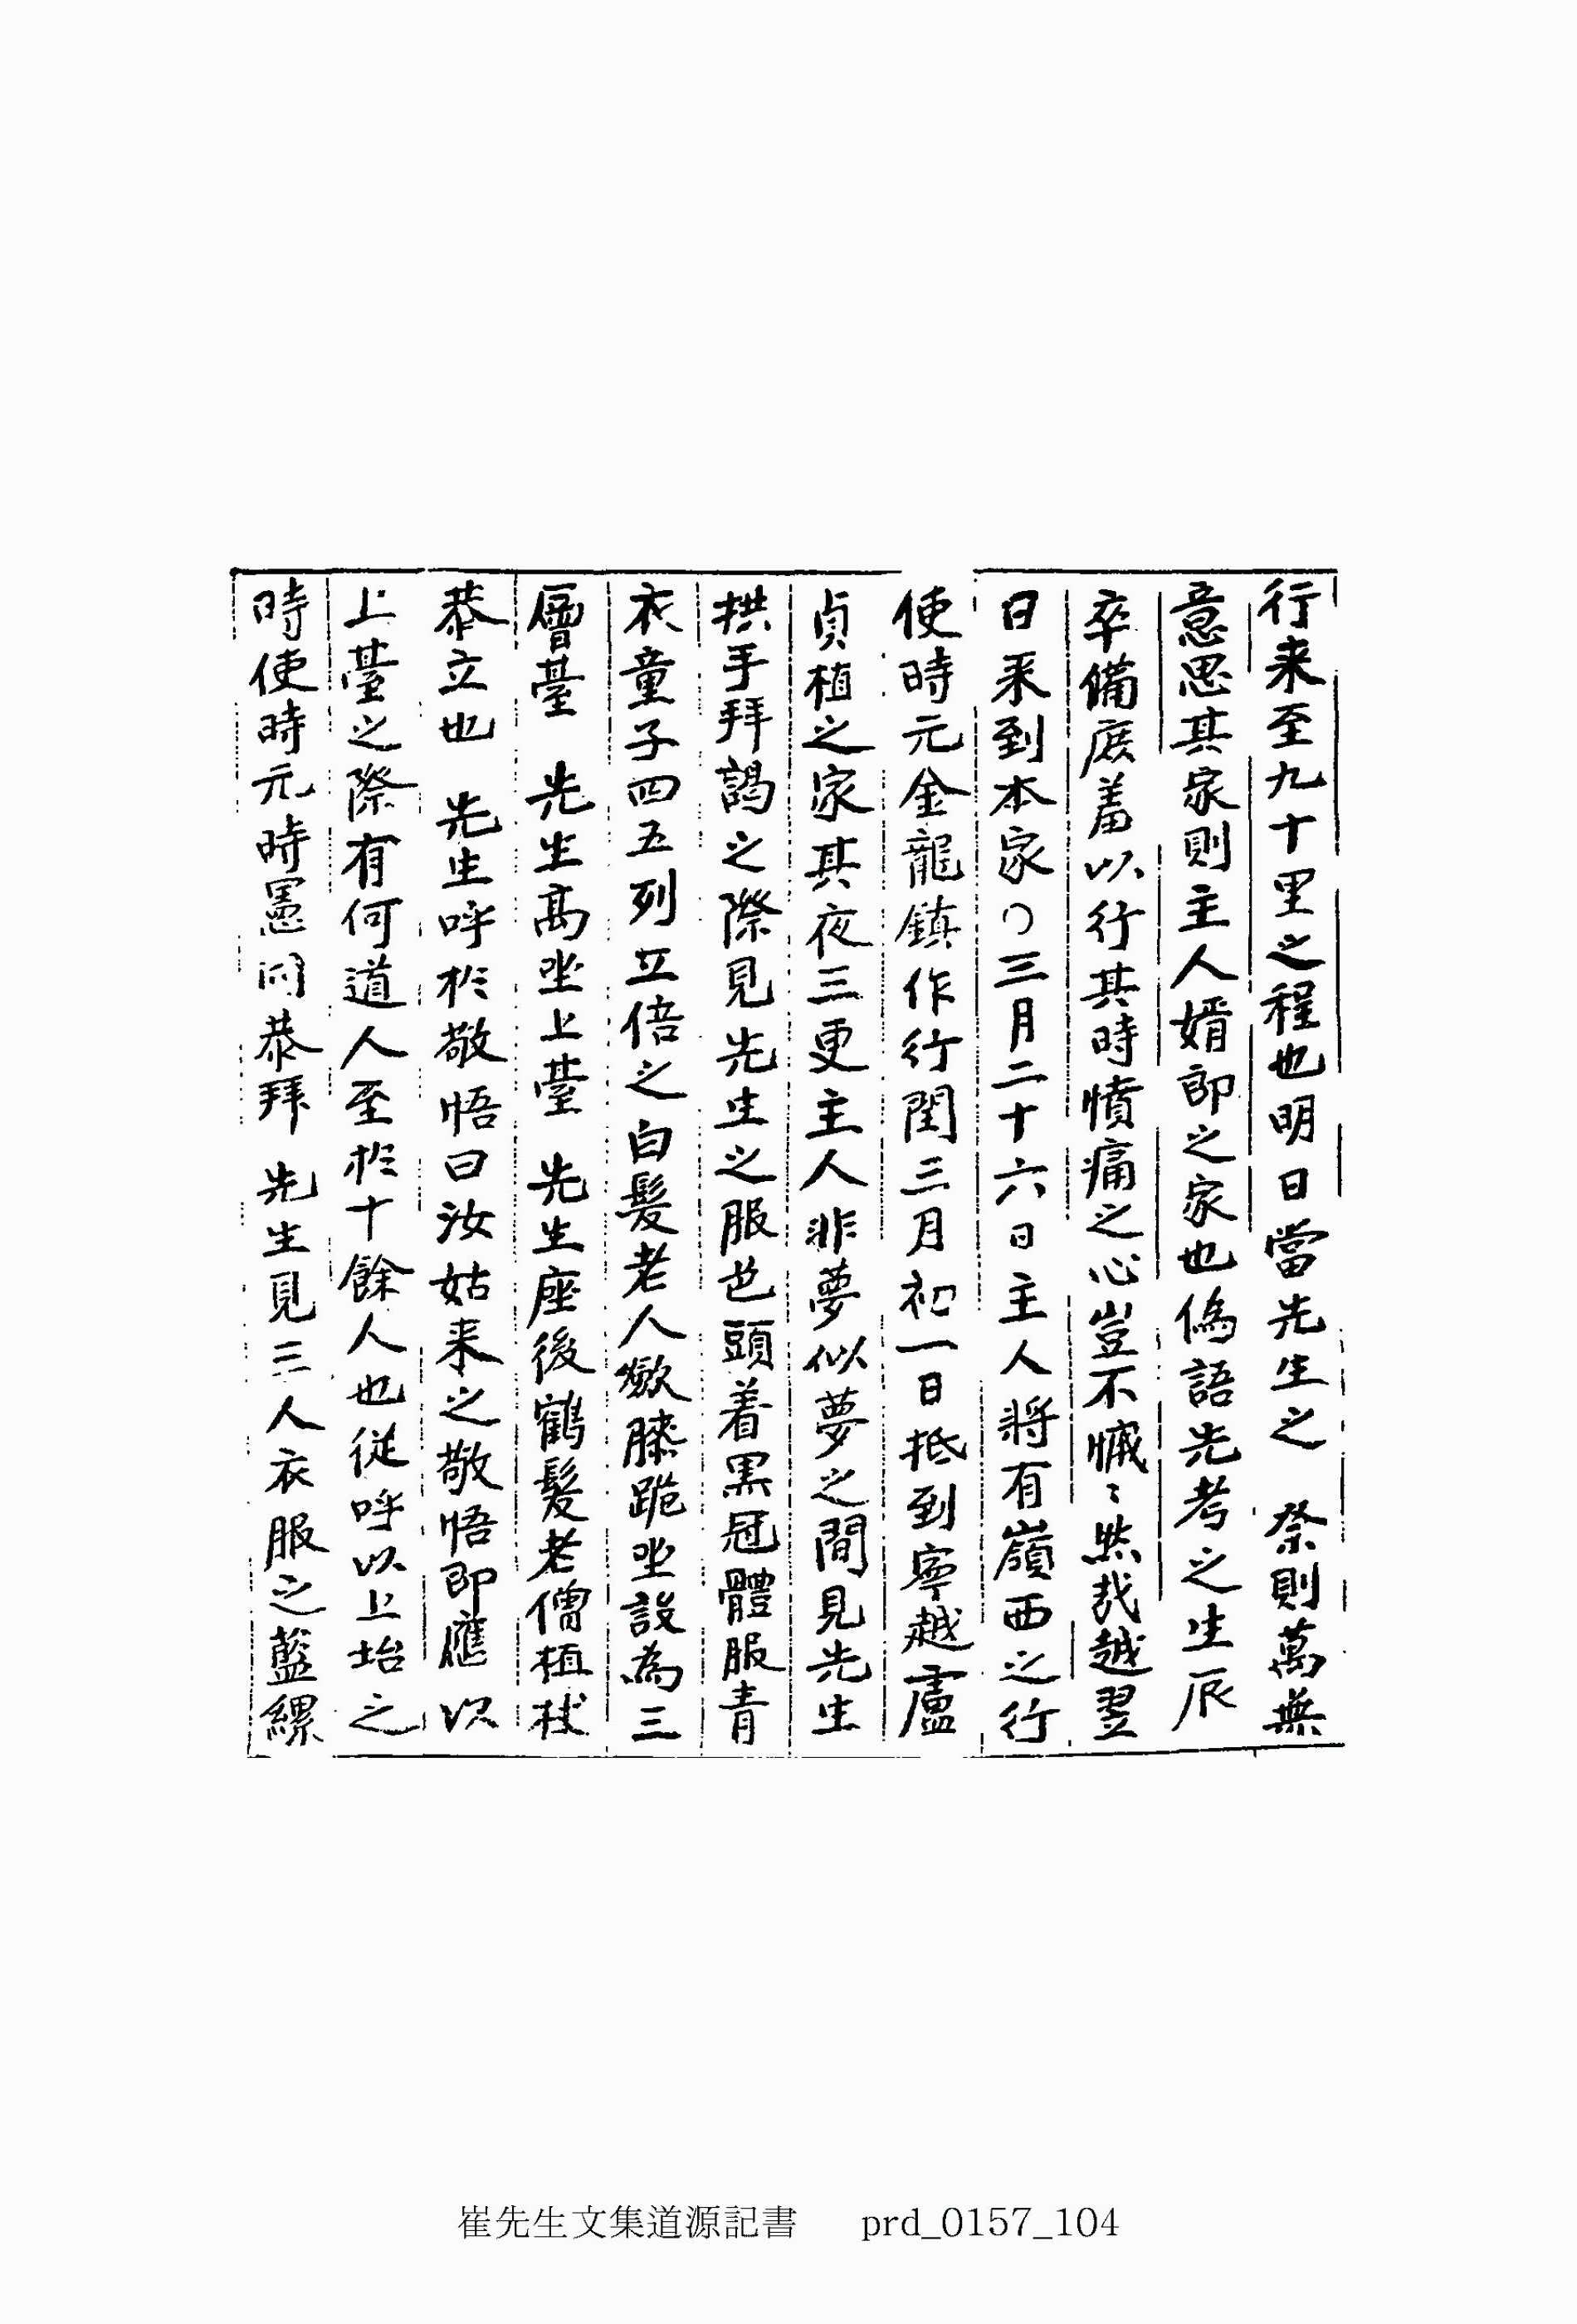 行来至九十里之程也明日當先生之 祭則萬無
意思其家則主人婿郎之家也偽語先考之生辰
卒備庶羞以行其時憤痛之心豈不慽〻然哉越翌
日来到本家〇三月二十六日主人將有嶺西之行
使時元金龍鎮作行閏三月初一日抵到寧越盧
貞植之家其夜三更主人非夢似夢之間見先生
拱手拜謁之際見先生之服色頭着黑冠體服青
衣童子四五列立倍之白髮老人歛膝跪坐設為三
層臺 先生高坐上臺 先生座後鶴髮老僧植杖
恭立也 先生呼於敬悟曰汝姑来之敬悟即應以
上臺之際有何道人至於十餘人也従呼以上坮之
時使時元時憲同恭拜 先生見三人衣服之藍縷
崔先生文集道源記書 prd_0157_104